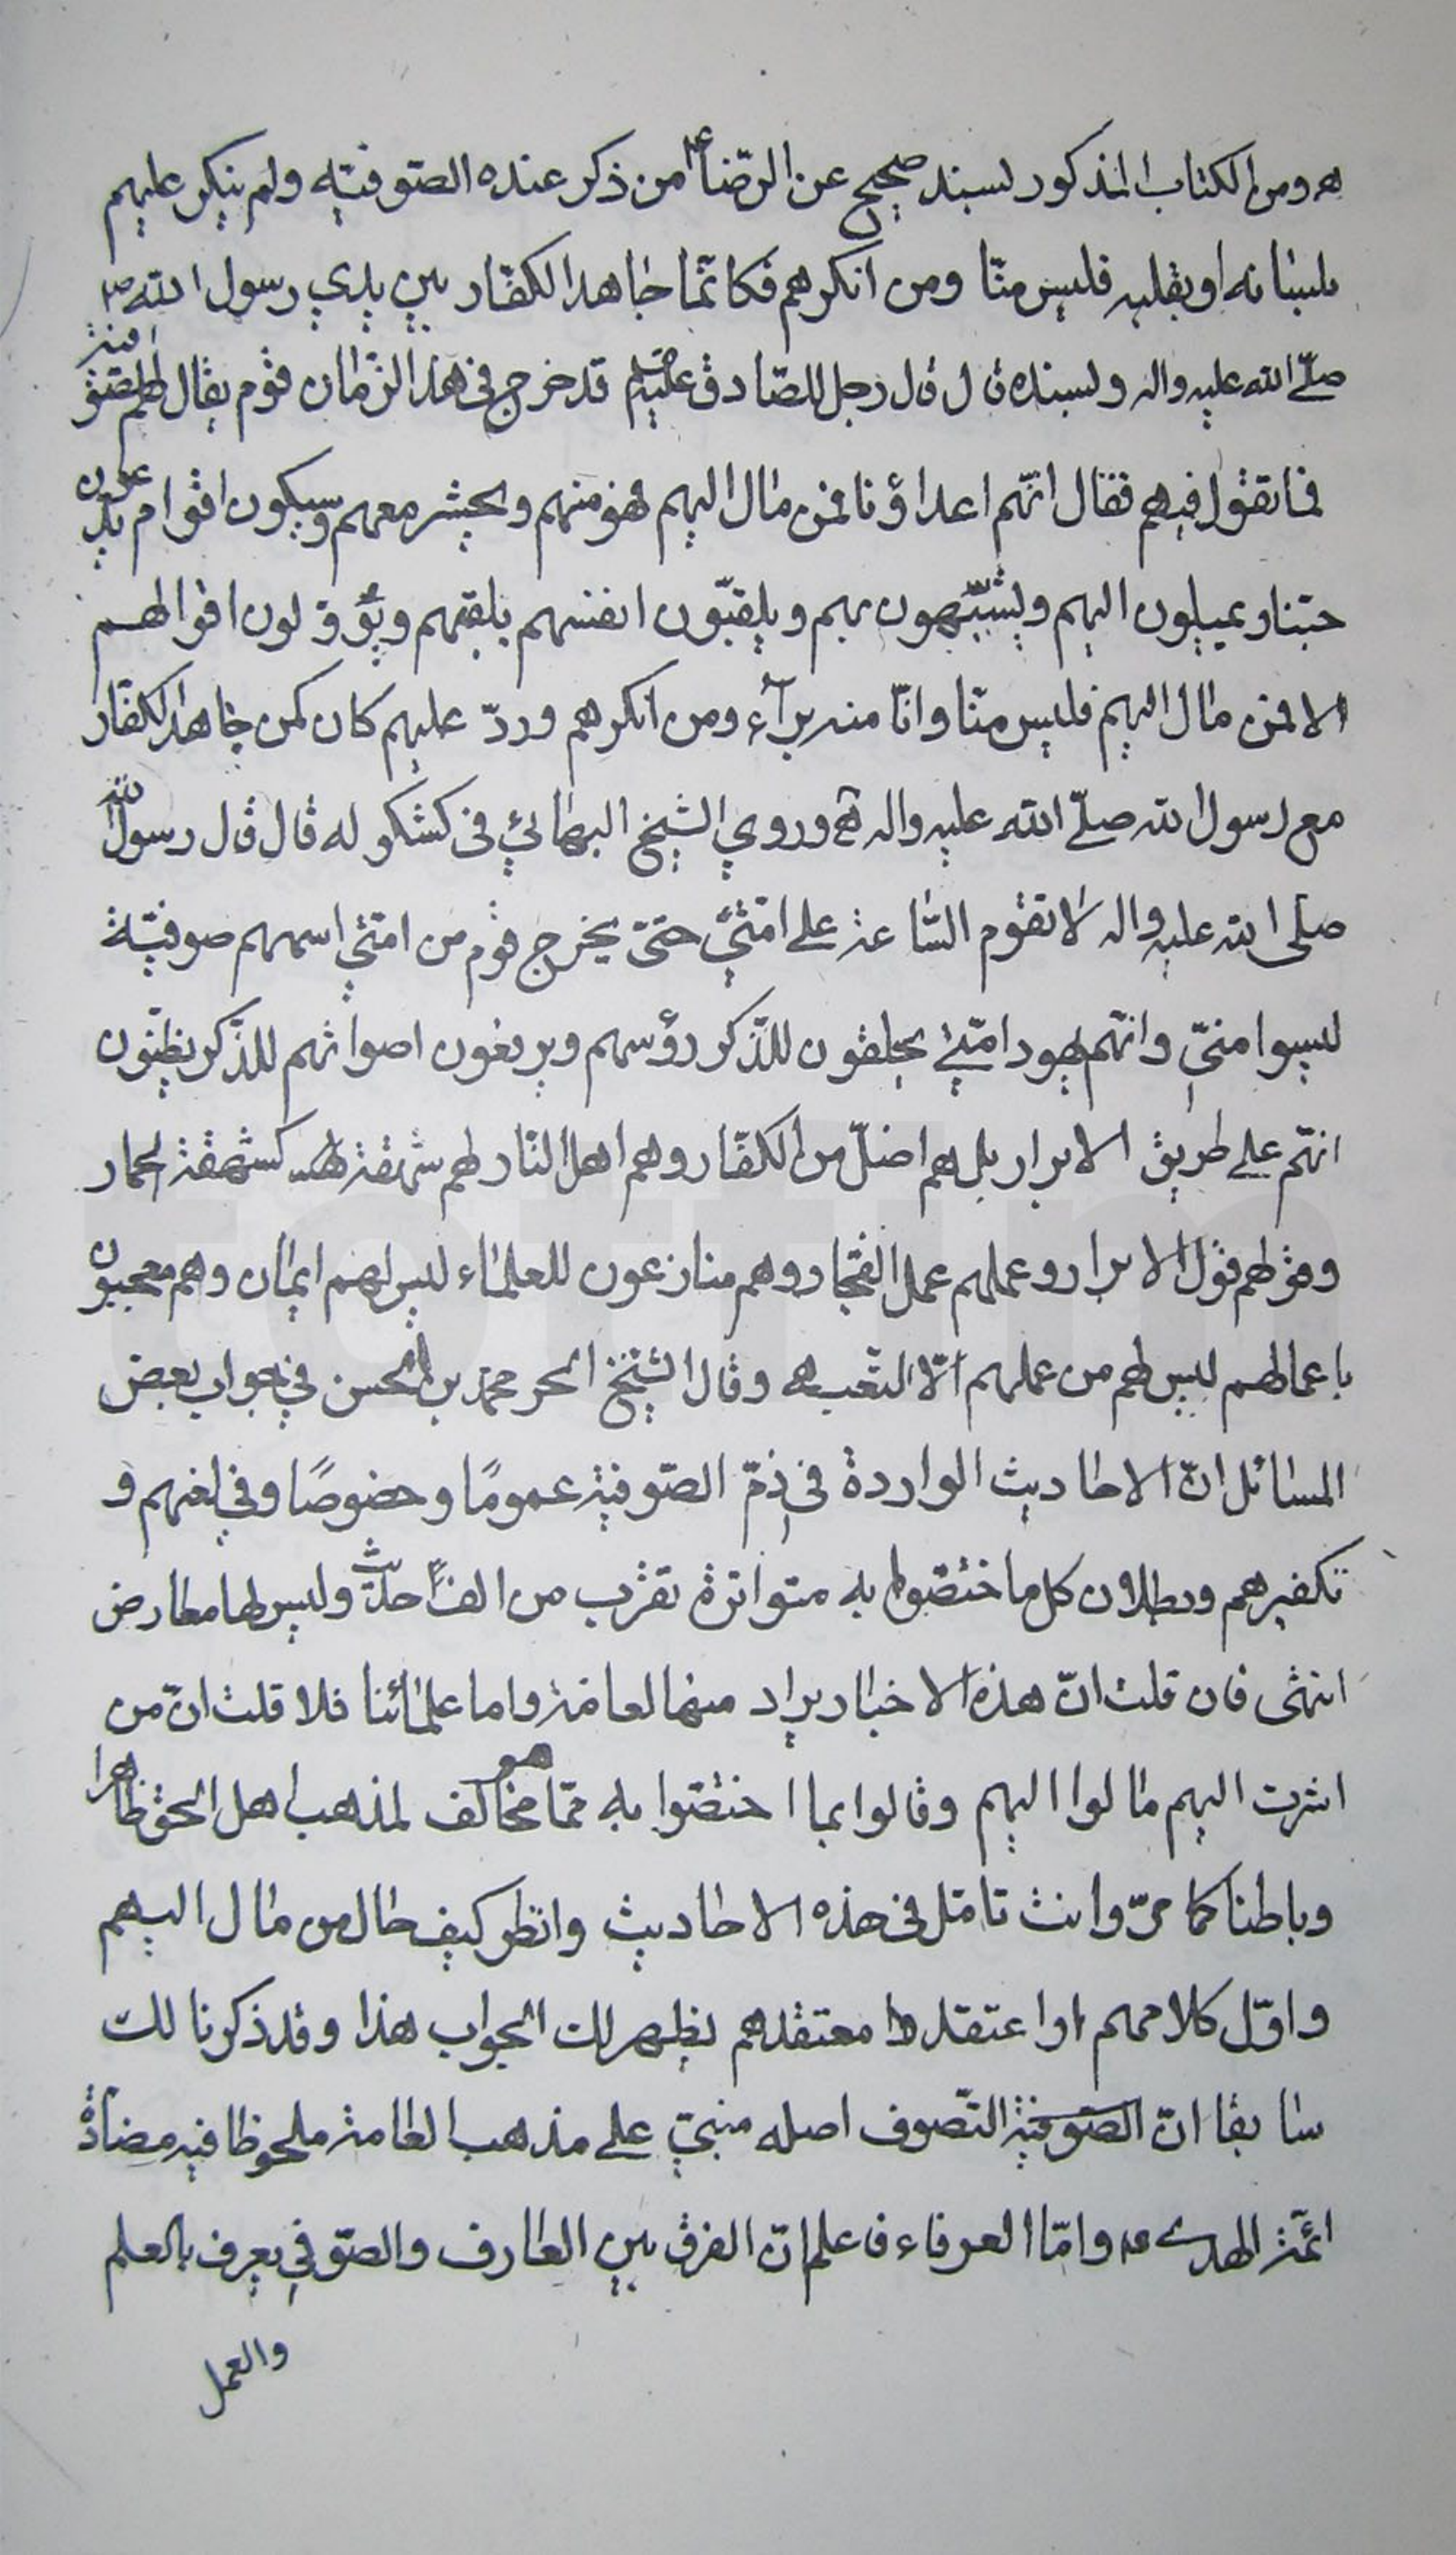 هـ ومن الكتاب المذكور بسند صحيح عن الرّضا ع من ذكر عنده الصّوفيّه ولم ينكر عليهم
بلسانه او بقلبه فليس منّا ومن انكرهم فكانّما جاهد الكفّار بين يدي رسول الله ص
صلّى الله عليه واله وبسنده قال قال رجل للصّادق عليه قد خرج في هذا الزّمان قوم يقال لهم الصّوفية
فما تقول فيهم فقال انّهم اعداؤنا فمن مال اليهم فهو منهم ويحشر معهم وسيكون اقوام يدّعون
حبّنا ويميلون اليهم ويتشبّهون بهم ويلقّبون انفسهم بلقبهم ويؤوّلون اقوالهم
الا فمن مال اليهم فليس منّا وانّا منه برآء ومن انكرهم وردّ عليهم كان كمن جاهد الكفّار
مع رسول الله صلّى الله عليه واله هـ وروي الشيخ البهائي في كشكوله قال قال رسول الله
صلى الله عليه واله لا تقوم السّاعة على امّتي حتّى يخرج قوم من امتي اسمهم صوفيّة
ليسوا منّي وانّهم يهود امّتي يحلقون للذّكر رؤسهم ويرفعون اصواتهم للذّكر يظنّون
انّهم على طريق الابرار بل هم اضلّ من الكفّار وهم اهل النّار لهم شهقة كشهقة الحمار
وقولهم قول الابرار وعملهم عمل الفجّار وهم منازعون للعلماء ليس لهم ايمان وهم معجبون
باعمالهم ليس لهم من عملهم الّا التّعب هـ وقال الشيخ الحر محمد بن الحسن في جواب بعض
المسائل انّ الاحاديث الواردة في ذمّ الصّوفيّة عمومًا وخصوصًا وفي لعنهم و
تكفيرهم وبطلان كل ما اختصّوا به متواترة تقرب من الف حديث وليس لها معارض
انتهى فان قلت انّ هذه الاخبار يراد منها العامّة واما علمائنا فلا قلت انّ من
اشرت اليهم مالوا اليهم وقالوا بما اختصّوا به ممّا هو مخالف لمذهب اهل الحق ظاهرا
وباطنا كما مرّ وانت تامّل في هذه الاحاديث وانظر كيف حال من مال اليهم
واوّل كلامهم او اعتقد معتقدهم يظهر لك الجواب هذا وقد ذكرنا لك
سابقا انّ الصّوفيّة التّصوف اصله مبنيّ على مذهب العامة ملحوظا فيه مضادّة
ائمّة الهدى ع وامّا العرفاء فاعلم انّ الفرق بين العارف والصّوفي يعرف بالعلم
والعمل